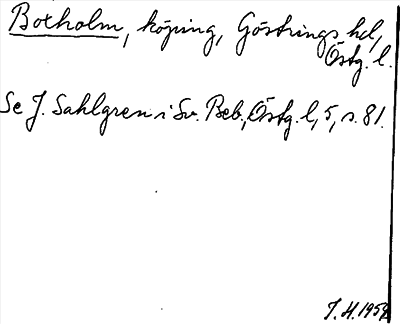 Boxholm, köping, Göstrings hd,
Östg. l.
Se J. Sahlgren i Sv. Beb., Östg. l, 5, s. 81.
J. H. 1959